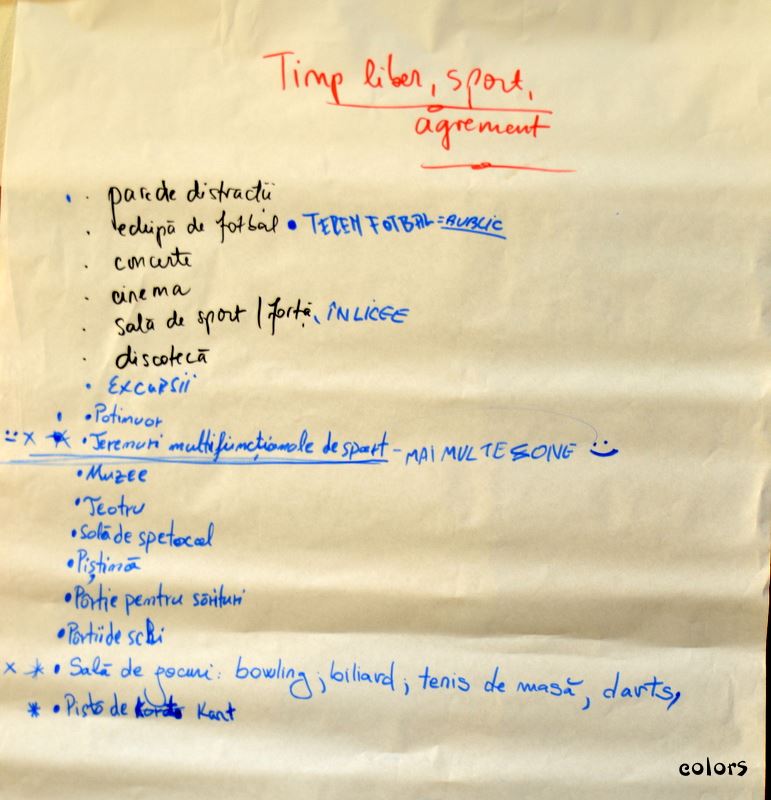 Timp liber, sport,
agrement
parc de distracții
echipă de fotbal • TEREN FOTBAL = PUBLIC
concerte
cinema
sală de sport / forță, ÎN LICEE
discotecă
• EXCURSII
• Patinuar
• Terenuri multifuncționale de sport - MAI MULTE ZONE
• Muzee
• Teatru
• Sală de spetacol
• Piștină
• Portie pentru sărituri
• Portii de schi
x * • Sală de jocuri: bowling; biliard; tenis de masă, darts,
* • Pistă de Kart
colors